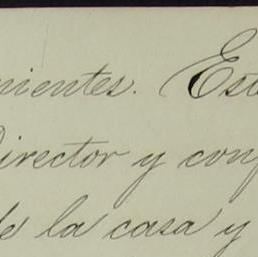 nientes. Est
Director y conf
de la casa y